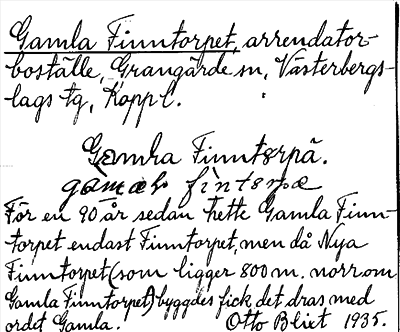 Gamla Finntorpet, arrendator-
boställe, Grangärde sn, Västerbergs-
lags tg, Kopp l.
Gamla Finntorpä.
För en 90 år sedan hette Gamla Finn-
torpet endast Finntorpet, men då Nya
Finntorpet (som ligger 800 m. norr om
Gamla Finntorpet) byggdes fick det dras med
ordet Gamla. Otto Blixt 1935.